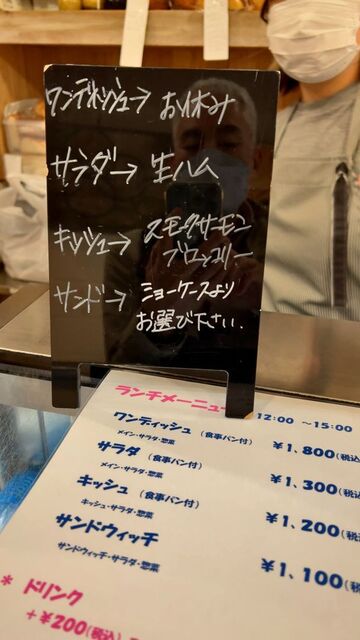 ワンディッシュ→ お休み
サラダ→ 生ハム
キッシュ→ スモークサーモン
ブロッコリー
サンド→ ショーケースより
お選び下さい.
ランチメニュー 12:00 ～15:00
ワンディッシュ (食事パン付) ¥1,800(税込
メイン・サラダ・惣菜
サラダ (食事パン付) ¥1,300(税込
メイン・サラダ・惣菜
キッシュ (食事パン付) ¥1,200(税
キッシュ・サラダ・惣菜
サンドウィッチ ¥1,100(税
サンドウィッチ・サラダ・惣菜
* ドリンク
+¥200(税込)